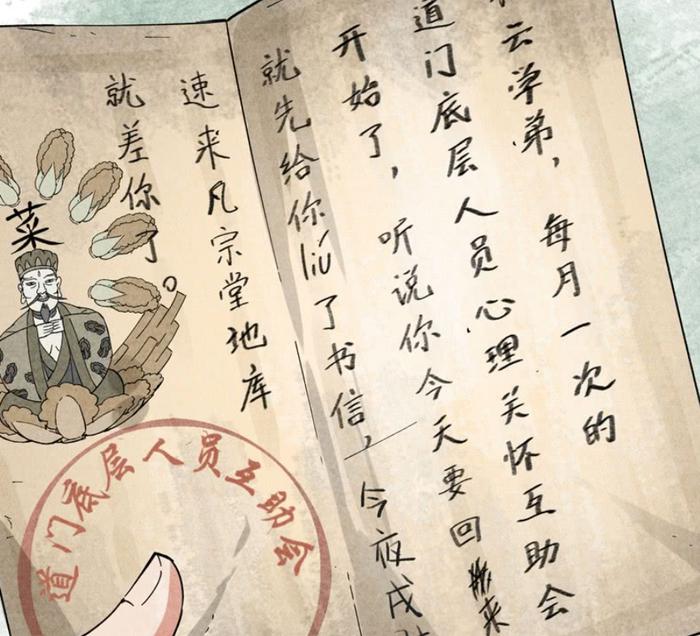 云学弟，每月一次的
道门底层人员心理关怀互助会
开始了，听说你今天要回来
就先给你liú了书信，今夜戌
速来凡宗堂地库
就差你了。
菜
道门底层人员互助会